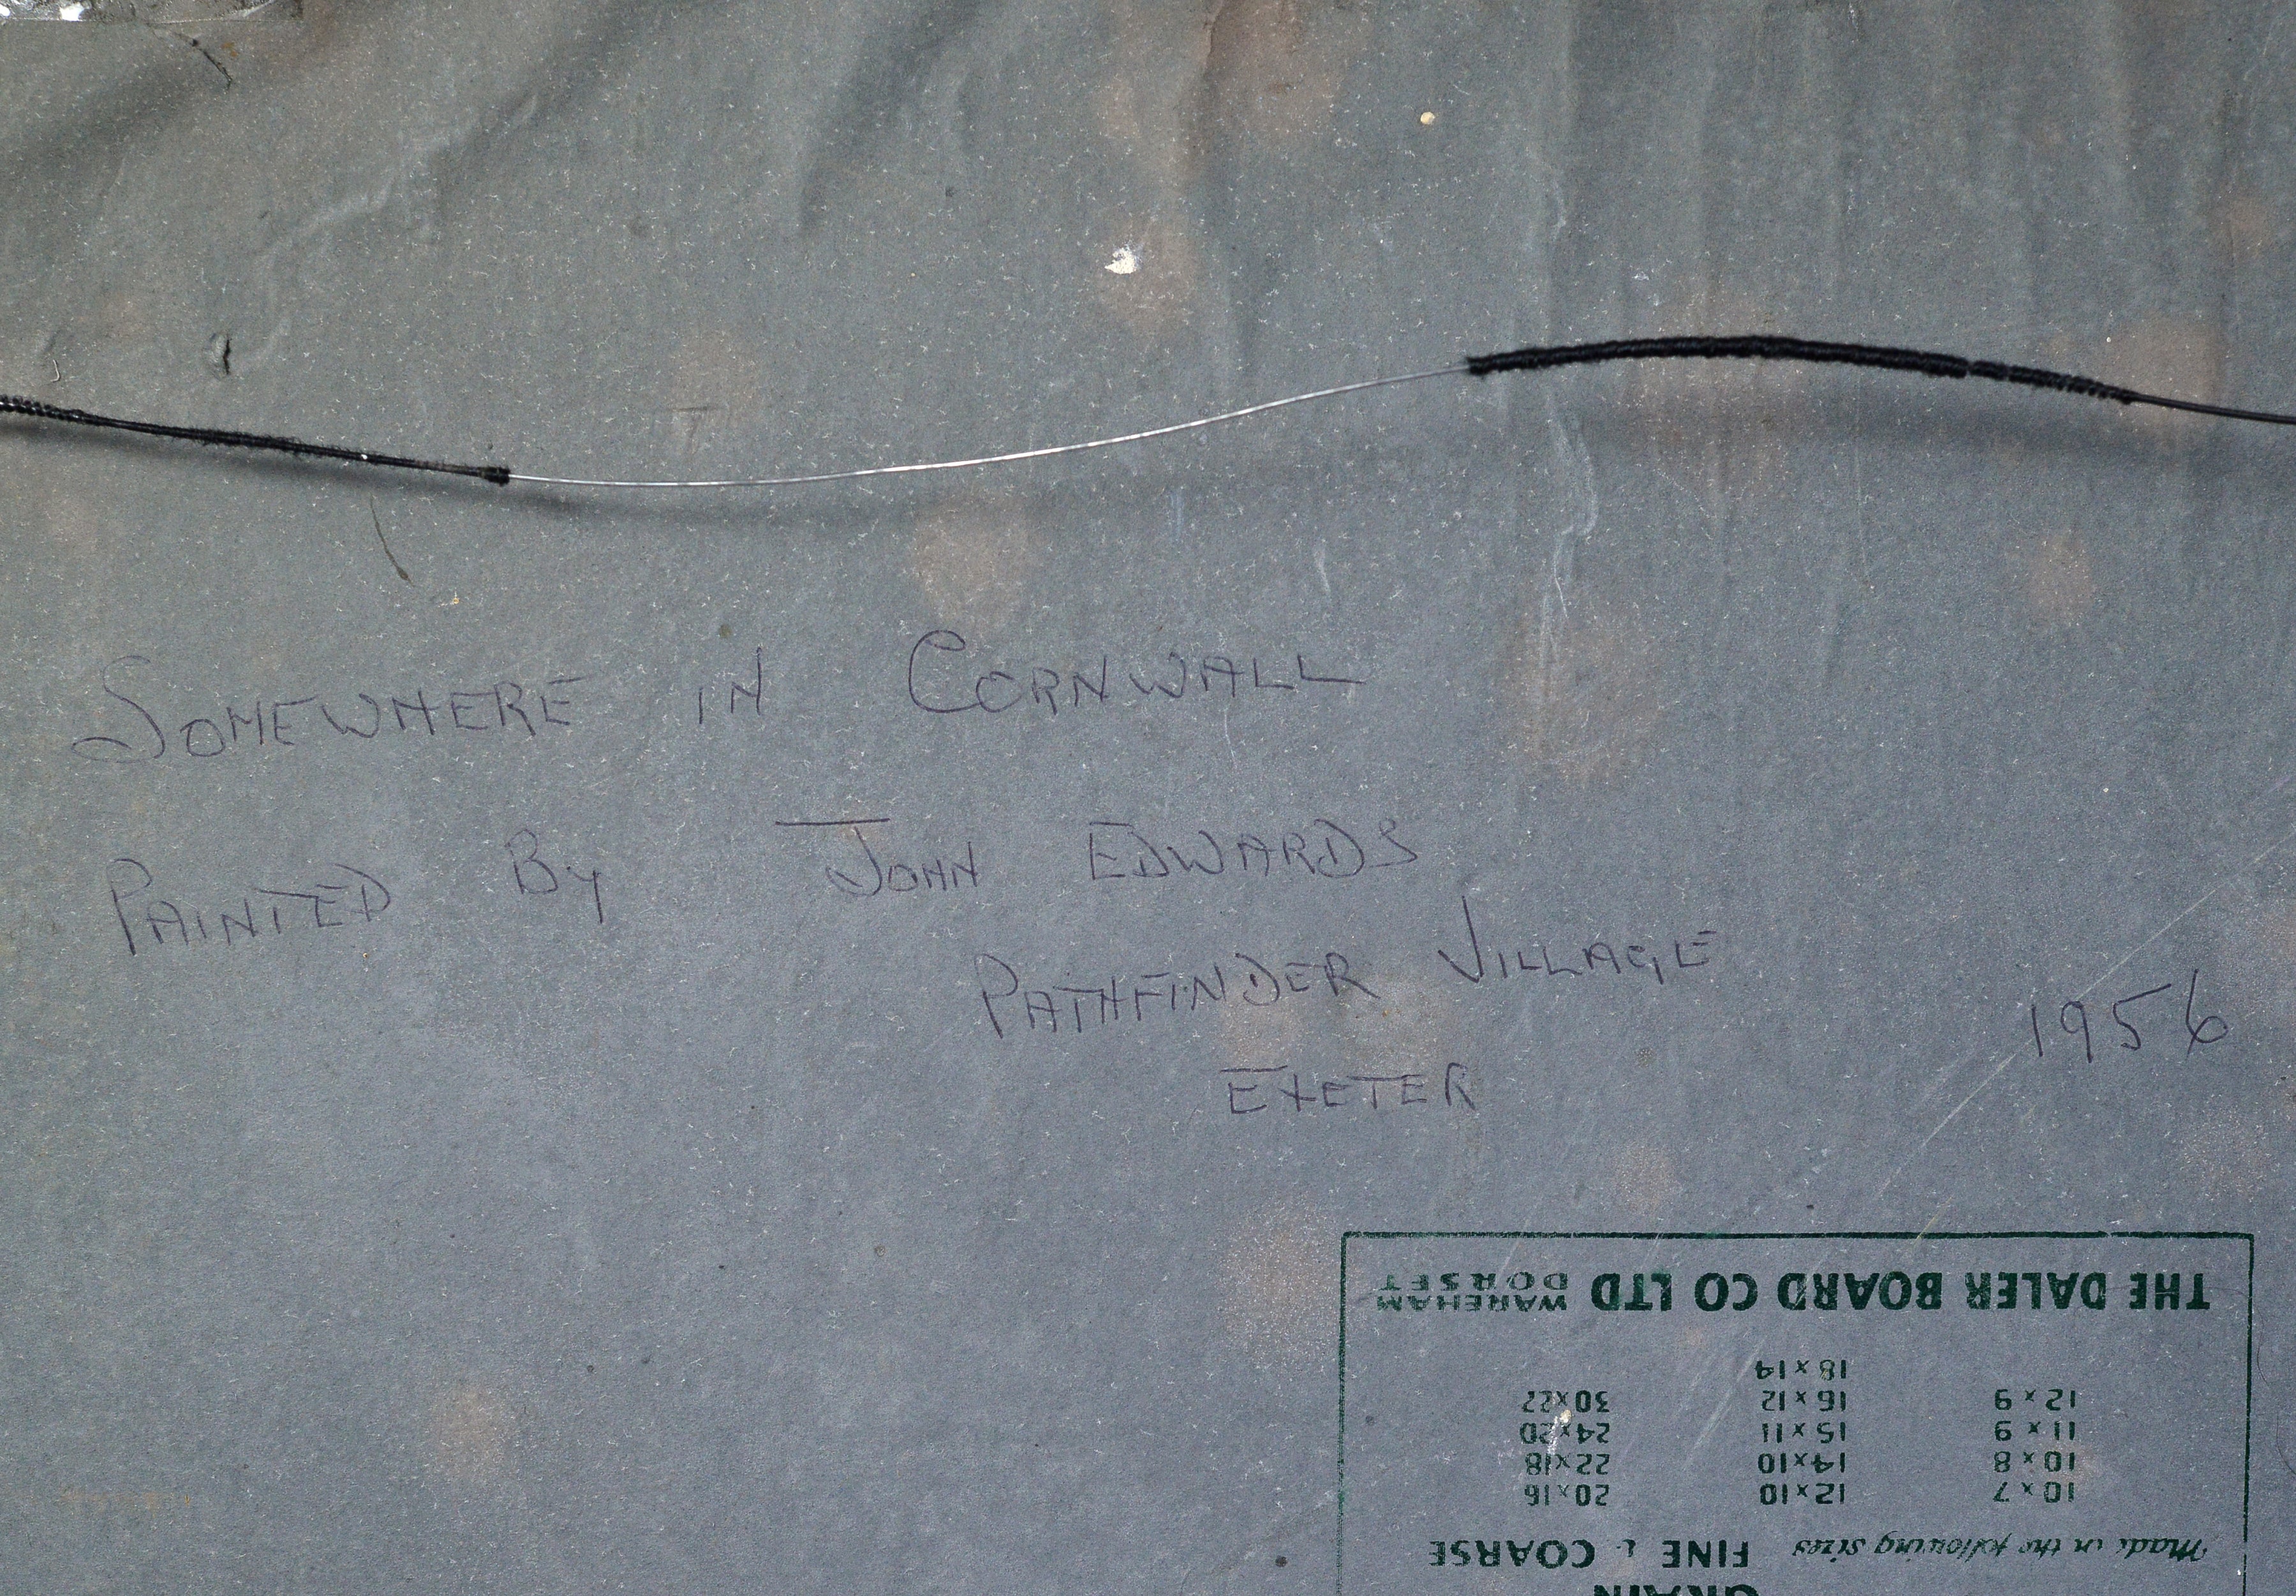 SOMEWHERE IN CORNWALL
PAINTED By JOHN EDWARDS
PATHFINDER VILLAGE
EXETER
1956
GRAIN
Made in the following sizes FINE & COARSE
10 x 7 12 x 10 20 x 16
10 x 8 14 x 10 22 x 18
11 x 9 15 x 11 24 x 20
12 x 9 16 x 12 30 x 22
18 x 14
THE DALER BOARD CO LTD WAREHAM DORSET